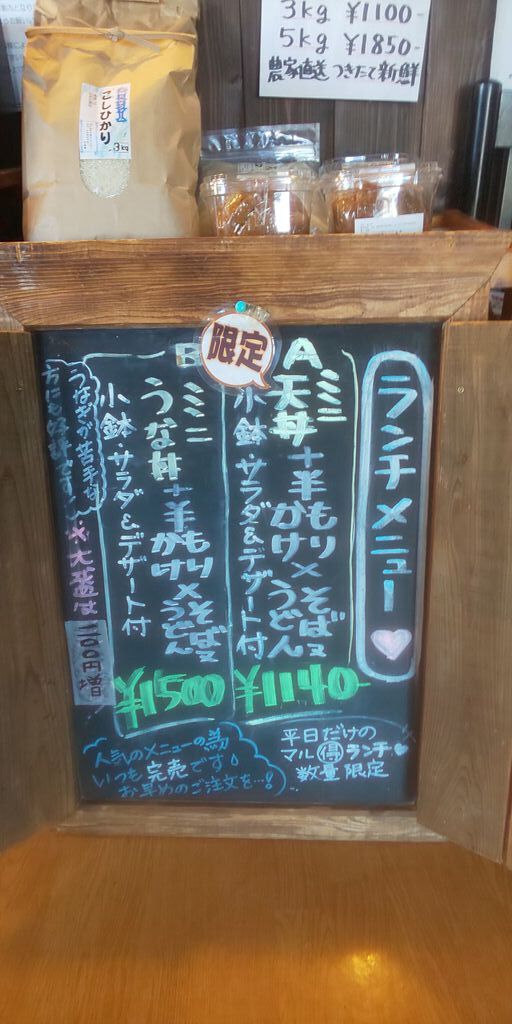 3kg ¥1100-
5kg ¥1850-
農家直送 つきたて新鮮
こしひかり
3kg
限定
ランチメニュー
A
ミニ
天丼
+半もり×そば又
かけ うどん
小鉢・サラダ&デザート付
¥1140-
B
ミニ
うな丼
+半もり×そば又
かけ うどん
小鉢・サラダ&デザート付
¥1500
うなぎが苦手な
方にも好評です!
※大盛は
二〇〇円増
平日だけの
マル得ランチ
数量限定
人気のメニューの為
いつも完売です!
お早めのご注文を…!